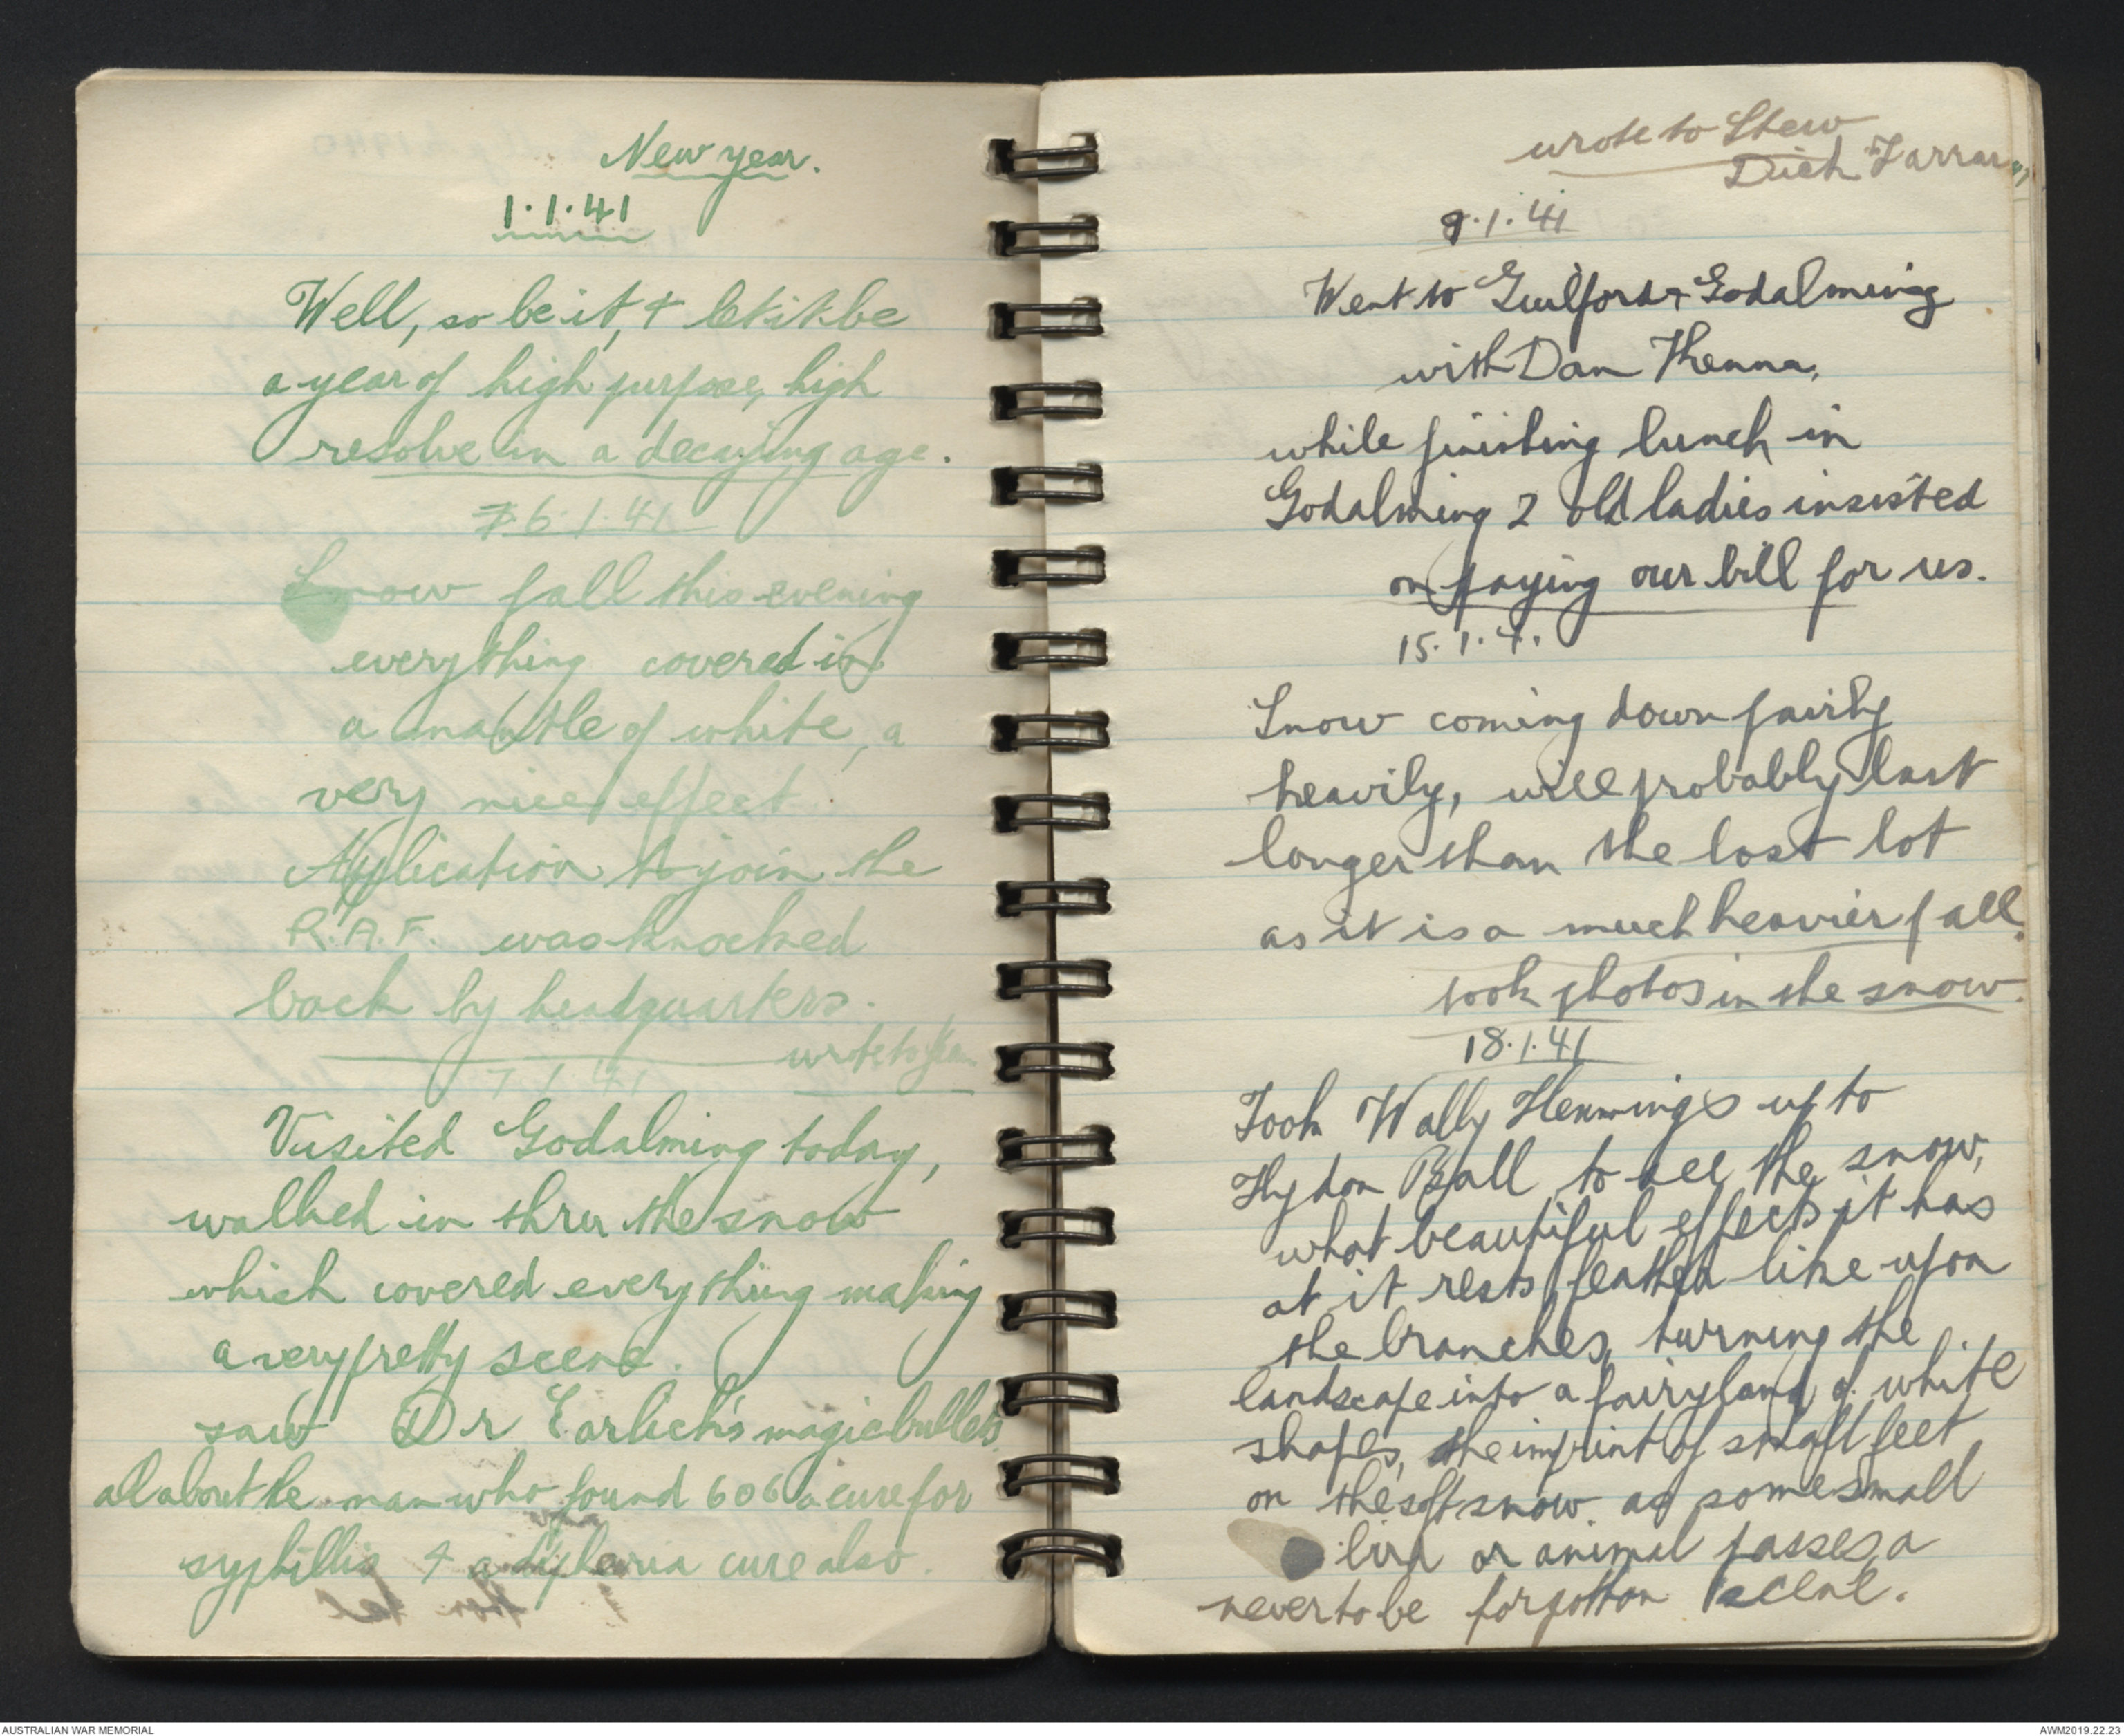 New year.
1.1.41
Well, so be it, + let it be
a year of high purpose, high
resolve in a decaying age.
6.1.41
Snow fall this evening
everything covered in
a mantle of white, a
very nice effect
Application to join the
R.A.F. was knocked
back by headquarters.
wrote to
7.1.41
Visited Godalming today,
walked in thru the snow
which covered everything making
a very pretty scene.
saw Dr Earlich's magic bullets
all about the man who found 606 a cure for
syphillis + a diptheria cure also.
wrote to Stew
Dick Farrar
9.1.41
Went to Guilford + Godalming
with Dan Thenna.
while finishing lunch in
Godalming 2 old ladies insisted
on paying our bill for us.
15.1.41
Snow coming down fairly
heavily, will probably last
longer than the last lot
as it is a much heavier fall.
took photos in the snow.
18.1.41
Took Wally Hemmings up to
Hydon Ball to see the snow,
what beautiful effects it has
as it rests feather like upon
the branches, turning the
landscape into a fairyland of white
shapes, the imprint of small feet
on the soft snow as some small
bird or animal passes, a
never to be forgotton scene.
AUSTRALIAN WAR MEMORIAL
AWM2019.22.23